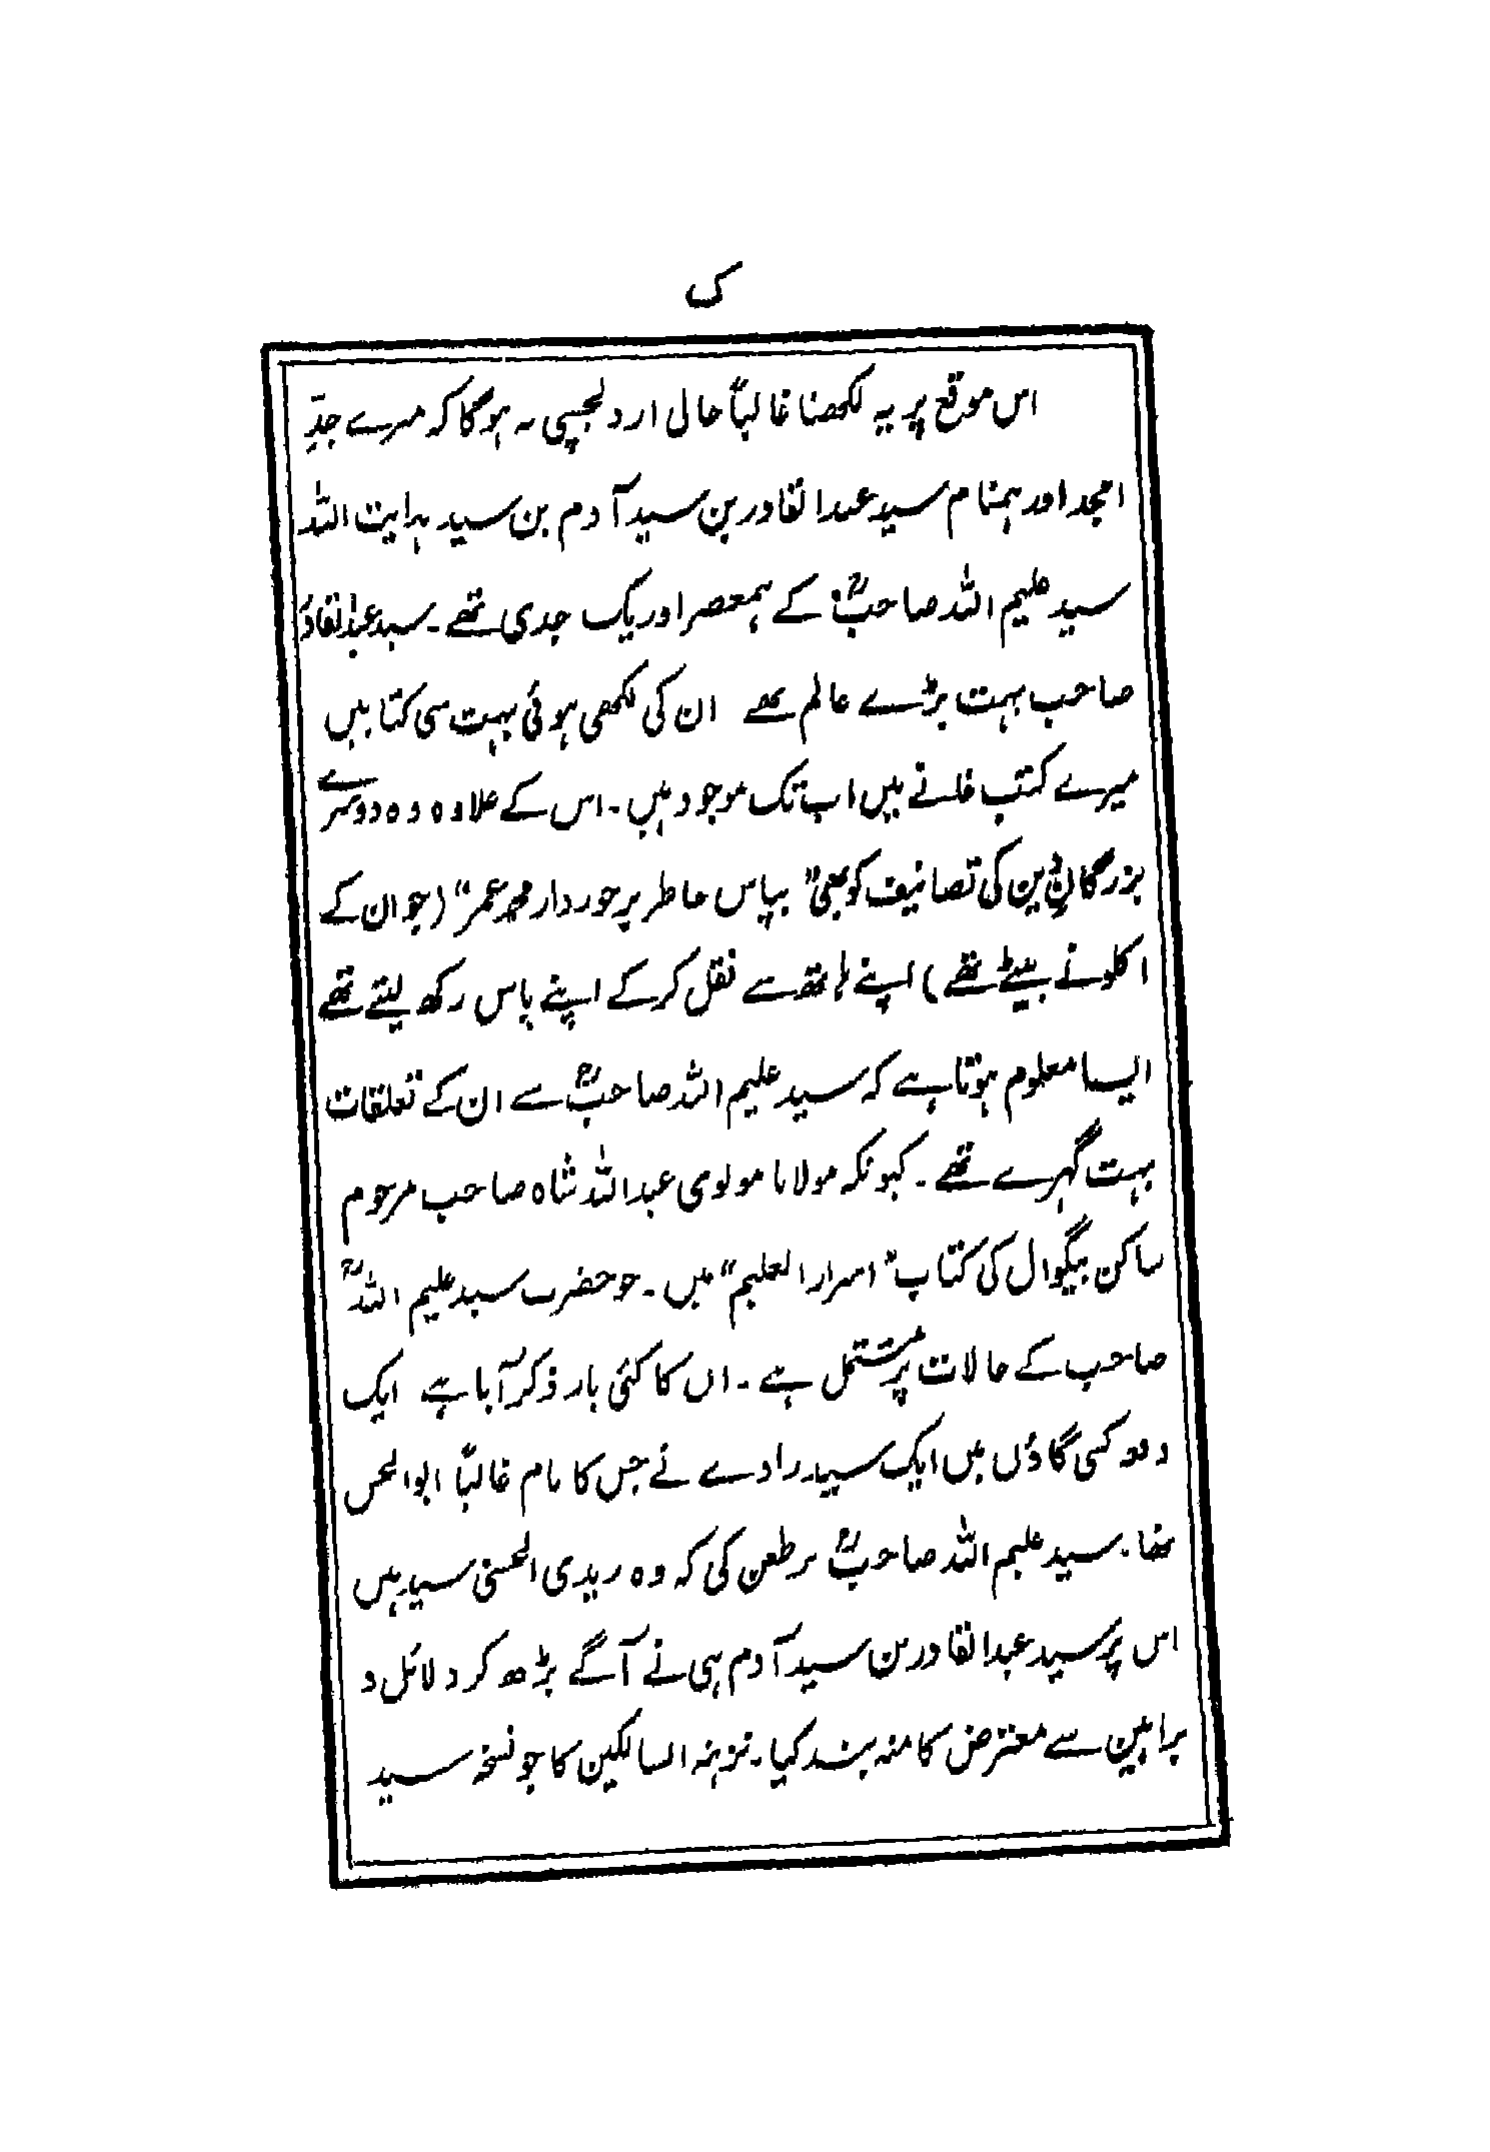 ک
اس موقع پر یہ لکھنا غالباً خالی از دلچسپی نہ ہوگا کہ میرے جدِّ
امجد اور ہمنام سید عبدالقادر بن سید آدم بن سید ہدایت اللہ
سید علیم اللہ صاحبؒ کے ہمعصر اور یک جدی تھے۔ سید عبدالقادر
صاحب بہت بڑے عالم تھے ان کی لکھی ہوئی بہت سی کتابیں
میرے کتب خانے میں اب تک موجود ہیں۔ اس کے علاوہ وہ دوسرے
بزرگانِ دین کی تصانیف کو بھی "بپاس خاطر برخوردار محمد عمر" (جو ان کے
اکلوتے بیٹے تھے) اپنے ہاتھ سے نقل کر کے اپنے پاس رکھ لیتے تھے
ایسا معلوم ہوتا ہے کہ سید علیم اللہ صاحبؒ سے ان کے تعلقات
بہت گہرے تھے۔ کیونکہ مولانا مولوی عبداللہ شاہ صاحب مرحوم
ساکن بیگوال کی کتاب "اسرار العلیم" میں۔ جو حضرت سید علیم اللہؒ
صاحب کے حالات پر مشتمل ہے۔ ان کا کئی بار ذکر آیا ہے ایک
دفعہ کسی گاؤں میں ایک سید زادے نے جس کا نام غالباً ابوالحسن
تھا۔ سید علیم اللہ صاحبؒ پر طعن کی کہ وہ زیدی الحسنی سید ہیں
اس پر سید عبدالقادر بن سید آدم ہی نے آگے بڑھ کر دلائل و
براہین سے معترض کا منہ بند کیا۔ نزہۃ السالکین کا جو نسخہ سید